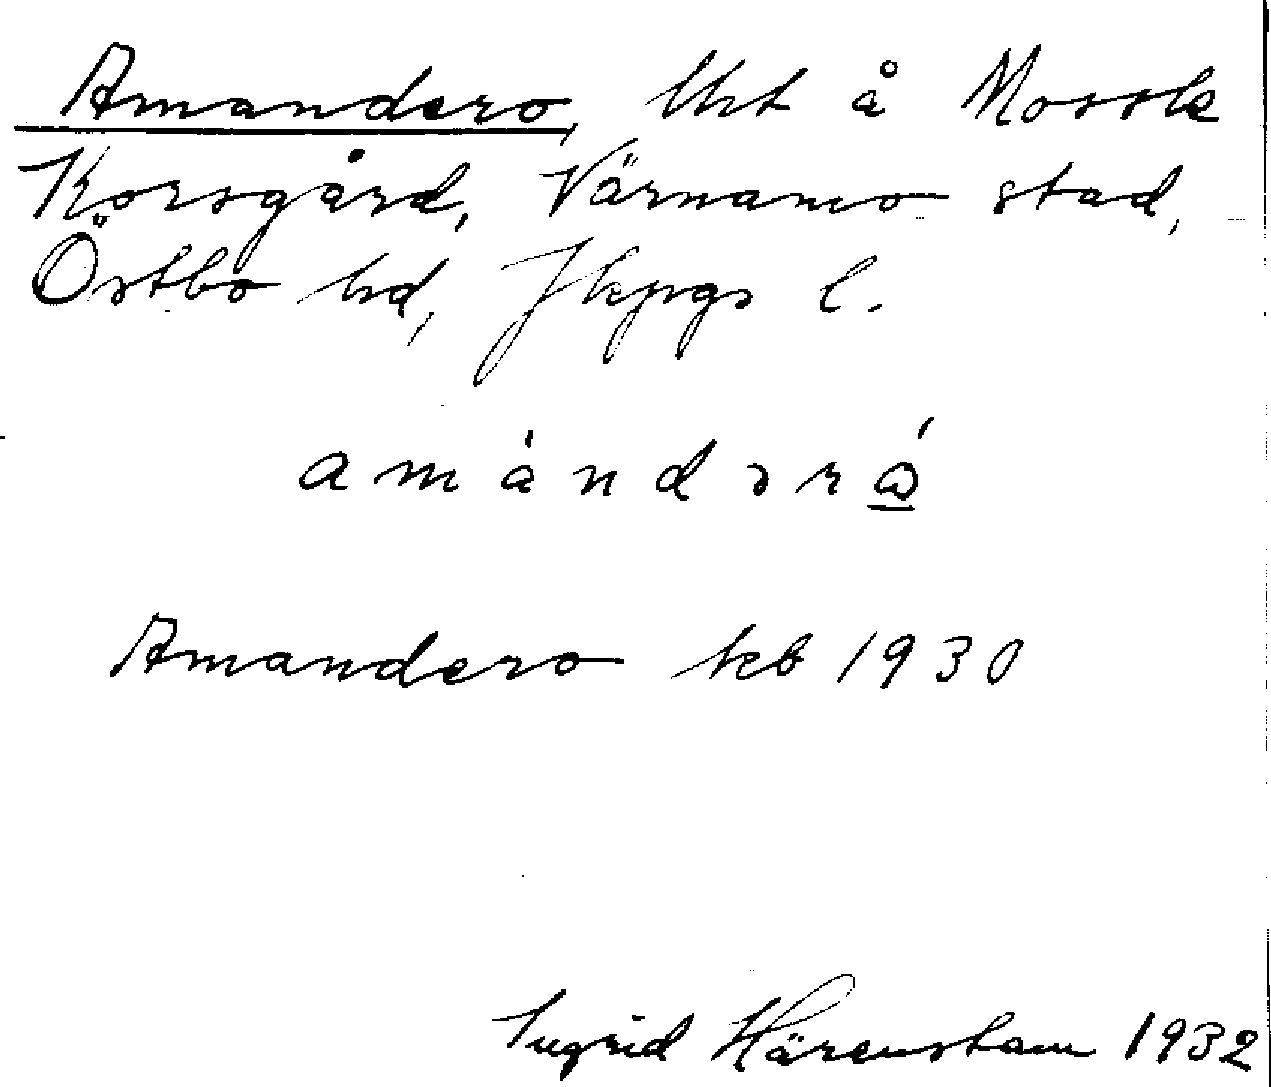 Amandero, lht å Mossle
Korsgård, Värnamo stad,
Östbo hd, Jkpgs l.
amándərɷ́
Amandero kb 1930
Ingrid Härenstam 1932